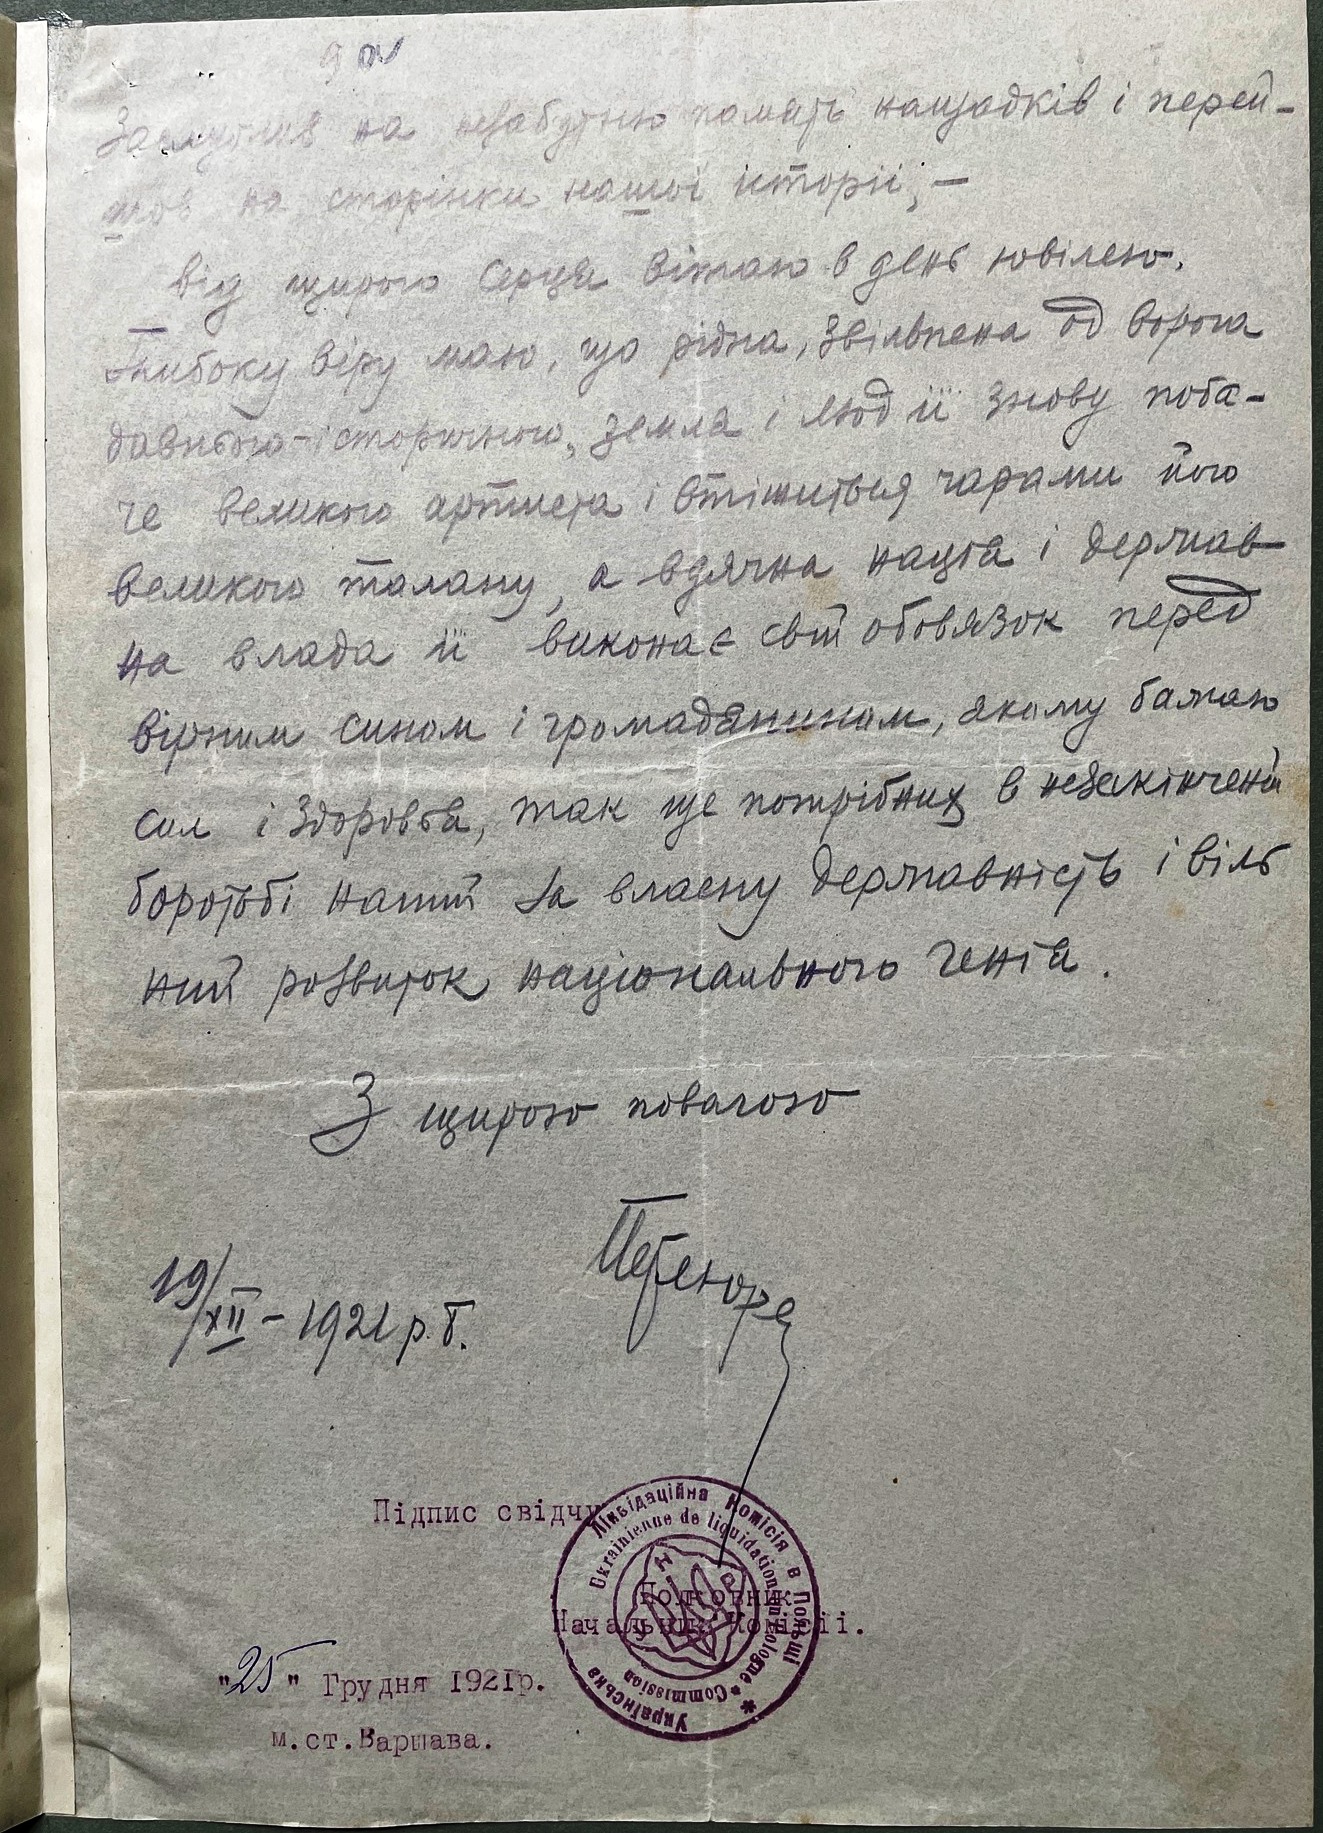 9 
Заслужив на незабутню память нащадків і перей-
шов на сторінки нашої історії, –
від щирого серця вітаю в день ювілею.
Глибоку віру маю, що рідна, звільнена од ворога
давнього-історичного, земля і люд її знову поба-
че великого артиста і втішиться чарами його
великого талану, а вдячна нація і держав-
на влада її виконає свій обовязок перед
вірним сином і громадянином, якому бажаю
сил і здоровья, так ще потрібних в незакінченій
боротьбі нашій за власну державність і віль
ний розвиток національного генія.
З щирою повагою
Петлюра
19/XII – 1921 р. Б.
Підпис свідчу
Полковник
Начальник Комісії.
Українська Ліквідаційна Комісія в Польщі
Commission Ukrainienne de liquidation en Pologne
У Н Р
"25" Грудня 1921р.
м.ст.Варшава.